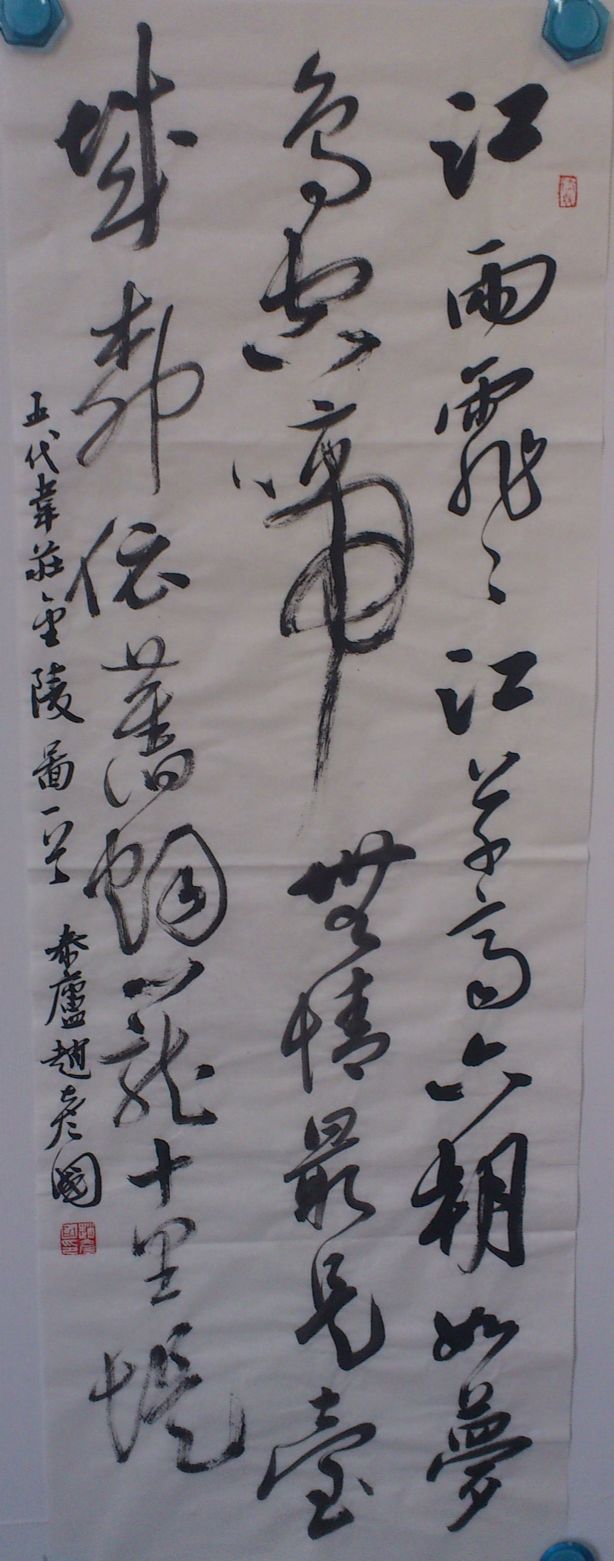 江雨霏〻江草齊六朝如夢
鳥空啼無情最是臺
城柳依舊烟籠十里堤
五代韋莊金陵圖一首 泰廬趙彥國